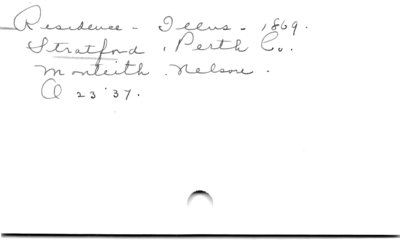 Residence - Illus. 1869.
Stratford, Perth Co.
Monteith, Nelson.
Q 23'37.